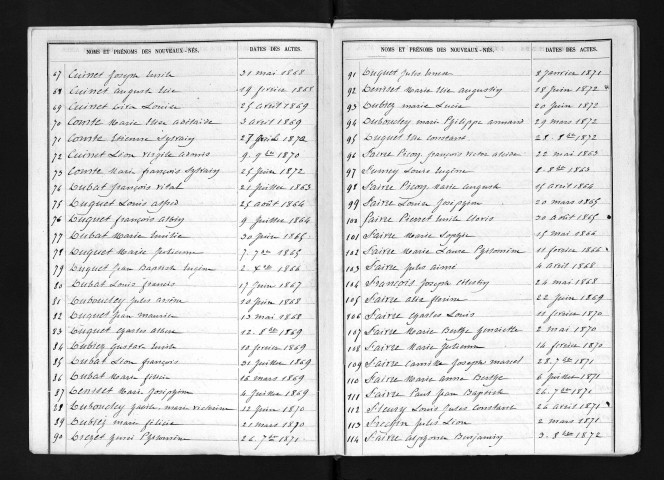 NOMS ET PRÉNOMS DES NOUVEAUX-NÉS. DATES DES ACTES.
67 Cuinet Joseph Emile 31 mai 1868
68 Cuinet auguste 19 février 1868
69 Cuinet Louise 25 avril 1869
70 Comte Marie adélaïde 3 avril 1869
71 Comte Etienne 1872
72 Cuinet Léon Virgile 9. 9bre 1870
73 Comte Marie françois 25 juin 1872
74 Dubat françois vital 21 juillet 1863
75 Duquet Louis alfred 25 août 1864
76 Duquet françois 9 juillet 1864
77 Dubat Marie Emilie 30 juin 1865
78 Duquet Marie Julienne 7. 7bre 1865
79 Duquet Jean Baptiste Eugène 2 Xbre 1866
80 Dubat Louis francis 17 juin 1867
81 Duboucley Jules 10 juin 1868
82 Duquet Jean maurice 13 mai 1868
83 Duquet Charles 12. 8bre 1869
84 Dubrez Gustave Emile 10 février 1869
85 Dubat Léon françois 31 juillet 1869
86 Dubat Marie 16 mars 1869
87 Marie Joséphine 4 juillet 1869
88 Duboucley marie 12 juin 1870
89 Dubrez marie félicie 21 mars 1870
90 Philomène 26. 7bre 1871
NOMS ET PRÉNOMS DES NOUVEAUX-NÉS. DATES DES ACTES.
91 Duquet Jules 8 janvier 1871
92 Marie augustin 18 juin 1872
93 Dubrez marie Lucie 20 juin 1872
94 Duboucley marie Philippe armand 29 mars 1872
95 Duquet constant 28. 8bre 1872
96 Faivre Picon françois victor 22 mai 1863
97 Louis Eugène 8. 8bre 1863
98 Faivre Picon Marie 15 avril 1864
99 Faivre Louise Joséphine 20 mars 1865
100 Faivre Pierret Emile 30 août 1865
101 Faivre Marie Sophie 15 mai 1866
102 Faivre Marie Laure Philomène 11 février 1866
103 Faivre Jules aimé 4 avril 1868
104 François Joseph 24 mai 1868
105 Faivre 22 juin 1869
106 Faivre Charles Louis 11 février 1870
107 Faivre Marie Berthe henriette 2 mai 1870
108 Faivre Marie Julienne 14 février 1870
109 Faivre Camille Joseph marcel 28. 7bre 1871
110 Faivre Marie anne Berthe 6 juillet 1871
111 Faivre Paul Jean Baptiste 26. 7bre 1871
112 Fleury Louis Jules Constant 26 avril 1871
113 Jules Léon 2 mars 1871
114 Faivre alphonse Benjamin 3. 8bre 1872